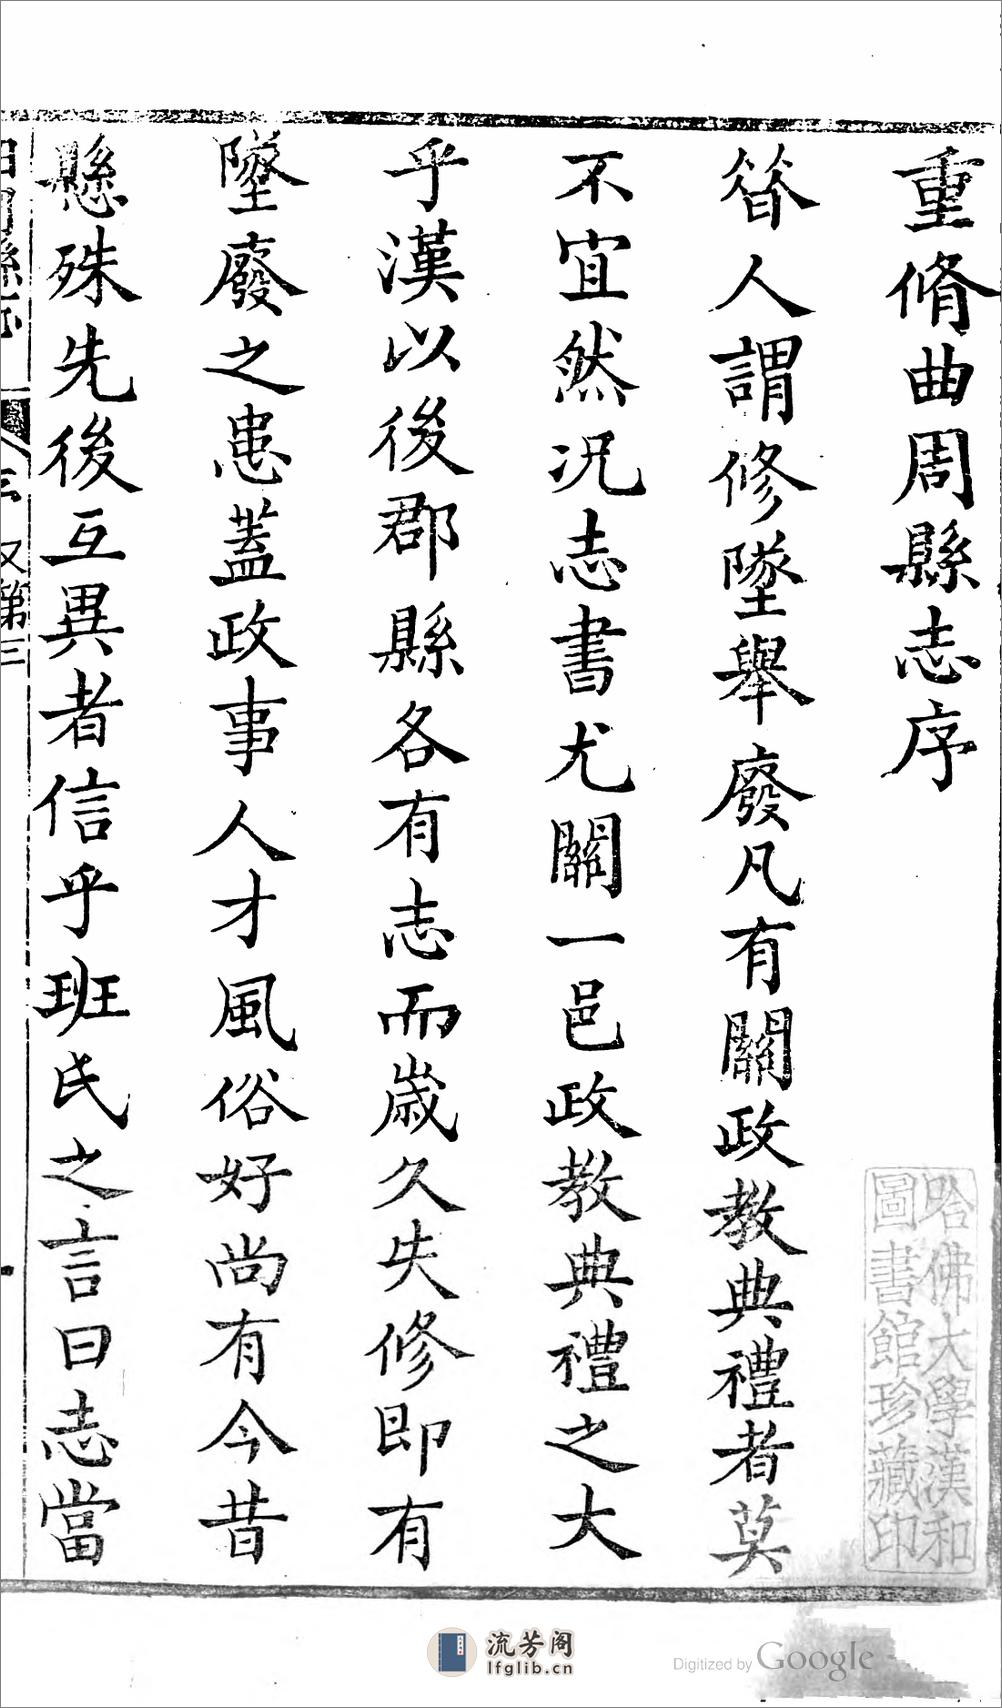 重脩曲周縣志序
昝人謂修墜舉廢凡有關政教典禮者莫
不宜然况志書尤關一邑政教典禮之大
乎漢以後郡縣各有志而歳久失修即有
墜廢之患蓋政事人才風俗好尚有今昔
懸殊先後互異者信乎班氏之言曰志當
又第三
哈佛大學漢和
圖書館珍藏印
流芳阁
lfglib.cn
Digitized by Google